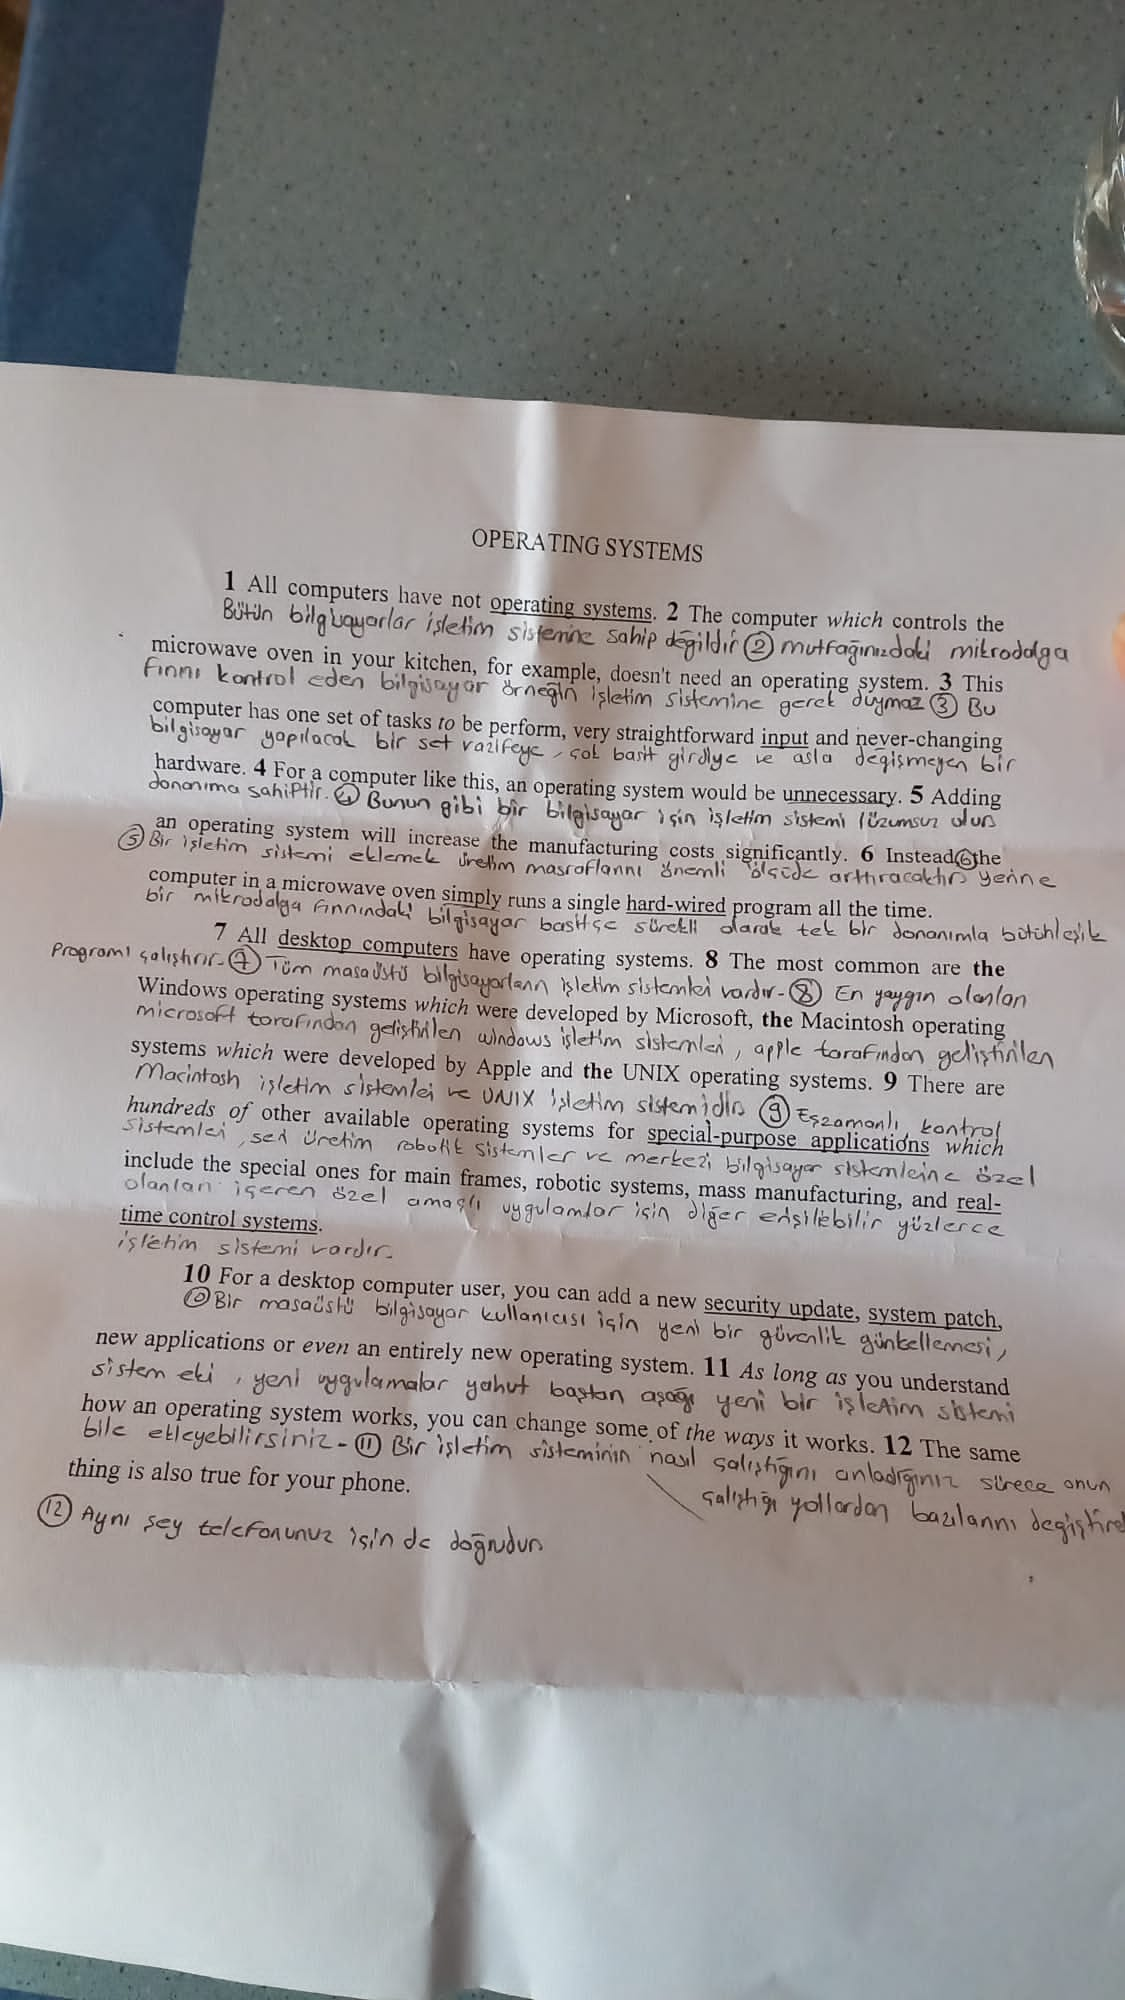 OPERATING SYSTEMS
1 All computers have not operating systems. 2 The computer which controls the
Bütün bilgisayarlar işletim sistemine sahip değildir ② mutfağınızdaki mikrodalga
microwave oven in your kitchen, for example, doesn't need an operating system. 3 This
fırını kontrol eden bilgisayar örneğin işletim sistemine gerek duymaz ③ Bu
computer has one set of tasks to be perform, very straightforward input and never-changing
bilgisayar yapılacak bir set vazifeye, çok basit girdiye ve asla değişmeyen bir
hardware. 4 For a computer like this, an operating system would be unnecessary. 5 Adding
donanıma sahiptir. ④ Bunun gibi bir bilgisayar için işletim sistemi lüzumsuz olur
an operating system will increase the manufacturing costs significantly. 6 Instead ⑥ the
⑤ Bir işletim sistemi eklemek üretim masraflarını önemli ölçüde arttıracaktır yerine
computer in a microwave oven simply runs a single hard-wired program all the time.
bir mikrodalga fırınındaki bilgisayar basitçe sürekli olarak tek bir donanımla bütünleşik
7 All desktop computers have operating systems. 8 The most common are the
programı çalıştırır. ⑦ Tüm masaüstü bilgisayarların işletim sistemleri vardır. ⑧ En yaygın olanları
Windows operating systems which were developed by Microsoft, the Macintosh operating
microsoft tarafından geliştirilen windows işletim sistemleri, apple tarafından geliştirilen
systems which were developed by Apple and the UNIX operating systems. 9 There are
Macintosh işletim sistemleri ve UNIX işletim sistemidir ⑨ Eşzamanlı kontrol
hundreds of other available operating systems for special-purpose applications which
sistemleri, seri üretim robotik sistemler ve merkezi bilgisayar sistemlerine özel
include the special ones for main frames, robotic systems, mass manufacturing, and real-
olanları içeren özel amaçlı uygulamlar için diğer erişilebilir yüzlerce
time control systems.
işletim sistemi vardır.
10 For a desktop computer user, you can add a new security update, system patch,
⑩ Bir masaüstü bilgisayar kullanıcısı için yeni bir güvenlik günkellemesi,
new applications or even an entirely new operating system. 11 As long as you understand
sistem eki, yeni uygulamalar yahut baştan aşağı yeni bir işletim sistemi
how an operating system works, you can change some of the ways it works. 12 The same
bile ekleyebilirsiniz. ⑪ Bir işletim sisteminin nasıl çalıştığını anladığınız sürece onun
thing is also true for your phone.
çalıştığı yollardan bazılarını değiştire
⑫ Aynı şey telefonunuz için de doğrudur